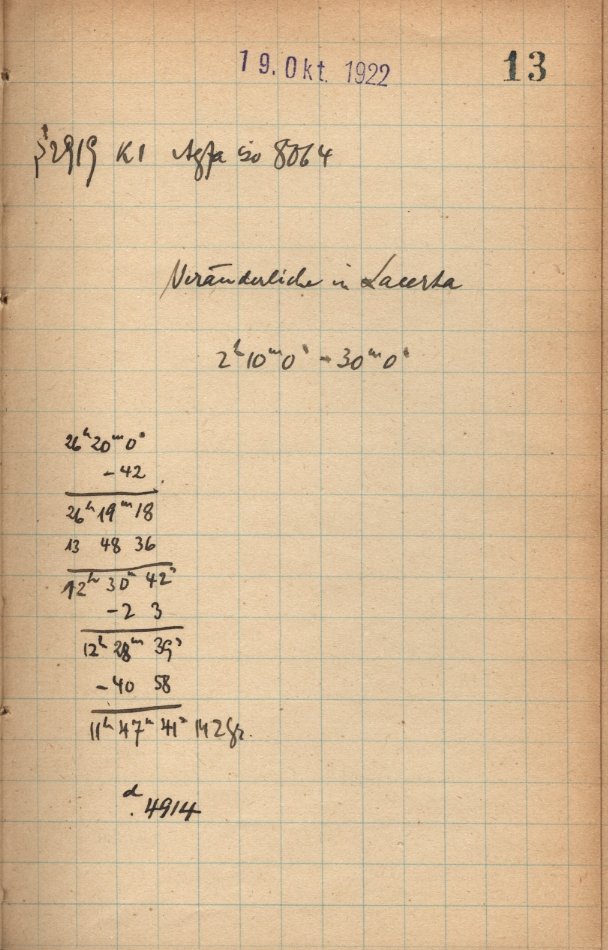 19. Okt. 1922
13
S2919 K1 Agfa iso 8064
Veränderliche in Lacerta
2ʰ10ᵐ0ˢ - 30ᵐ0ˢ
26ʰ20ᵐ0ˢ
-42
26ʰ19ᵐ18
13 48 36
12ʰ30ᵐ42ˢ
-2 3
12ʰ28ᵐ39ˢ
-40 58
11ʰ47ᵐ41ˢ M2Gr.
ᵈ.4914